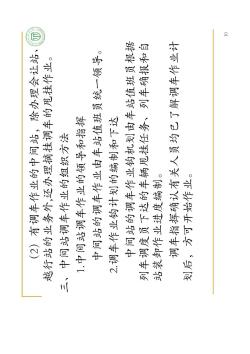 (2) 有调车作业的中间站，除办理会让站、
越行站的业务外,还办理摘挂调车的甩挂作业。
三、中间站调车作业的组织方法
1.中间站调车作业的领导和指挥
中间站的调车作业由车站值班员统一领导。
2.调车作业钩计划的编制和下达
中间站的调车作业钩机划由车站值班员根据
列车调度员下达的车辆甩挂任务、列车确报和自
站装卸作业进度编制。
调车指挥确认有关人员均已了解调车作业计
划后，方可开始作业。